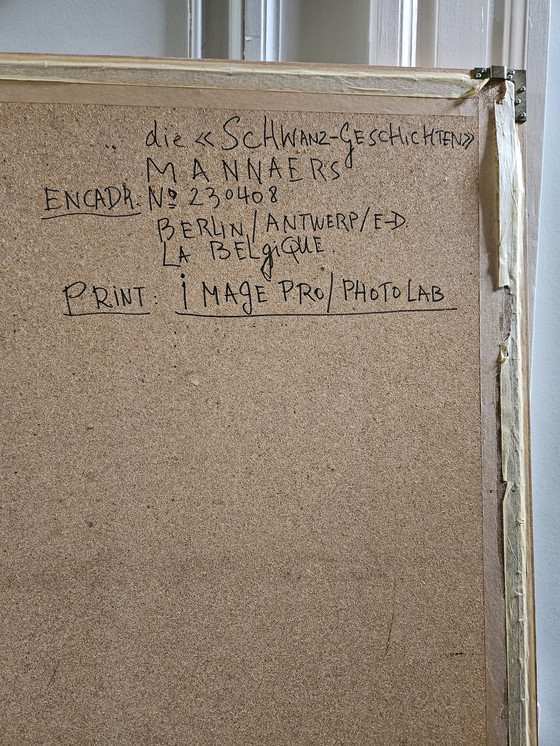 die « SCHWANZ-GESCHICHTEN »
MANNAERS
ENCADR. Nº 230408
BERLIN/ANTWERP/E-D.
LA BELgiQUE.
PRINT: iMAGE PRO/PHOTOLAB